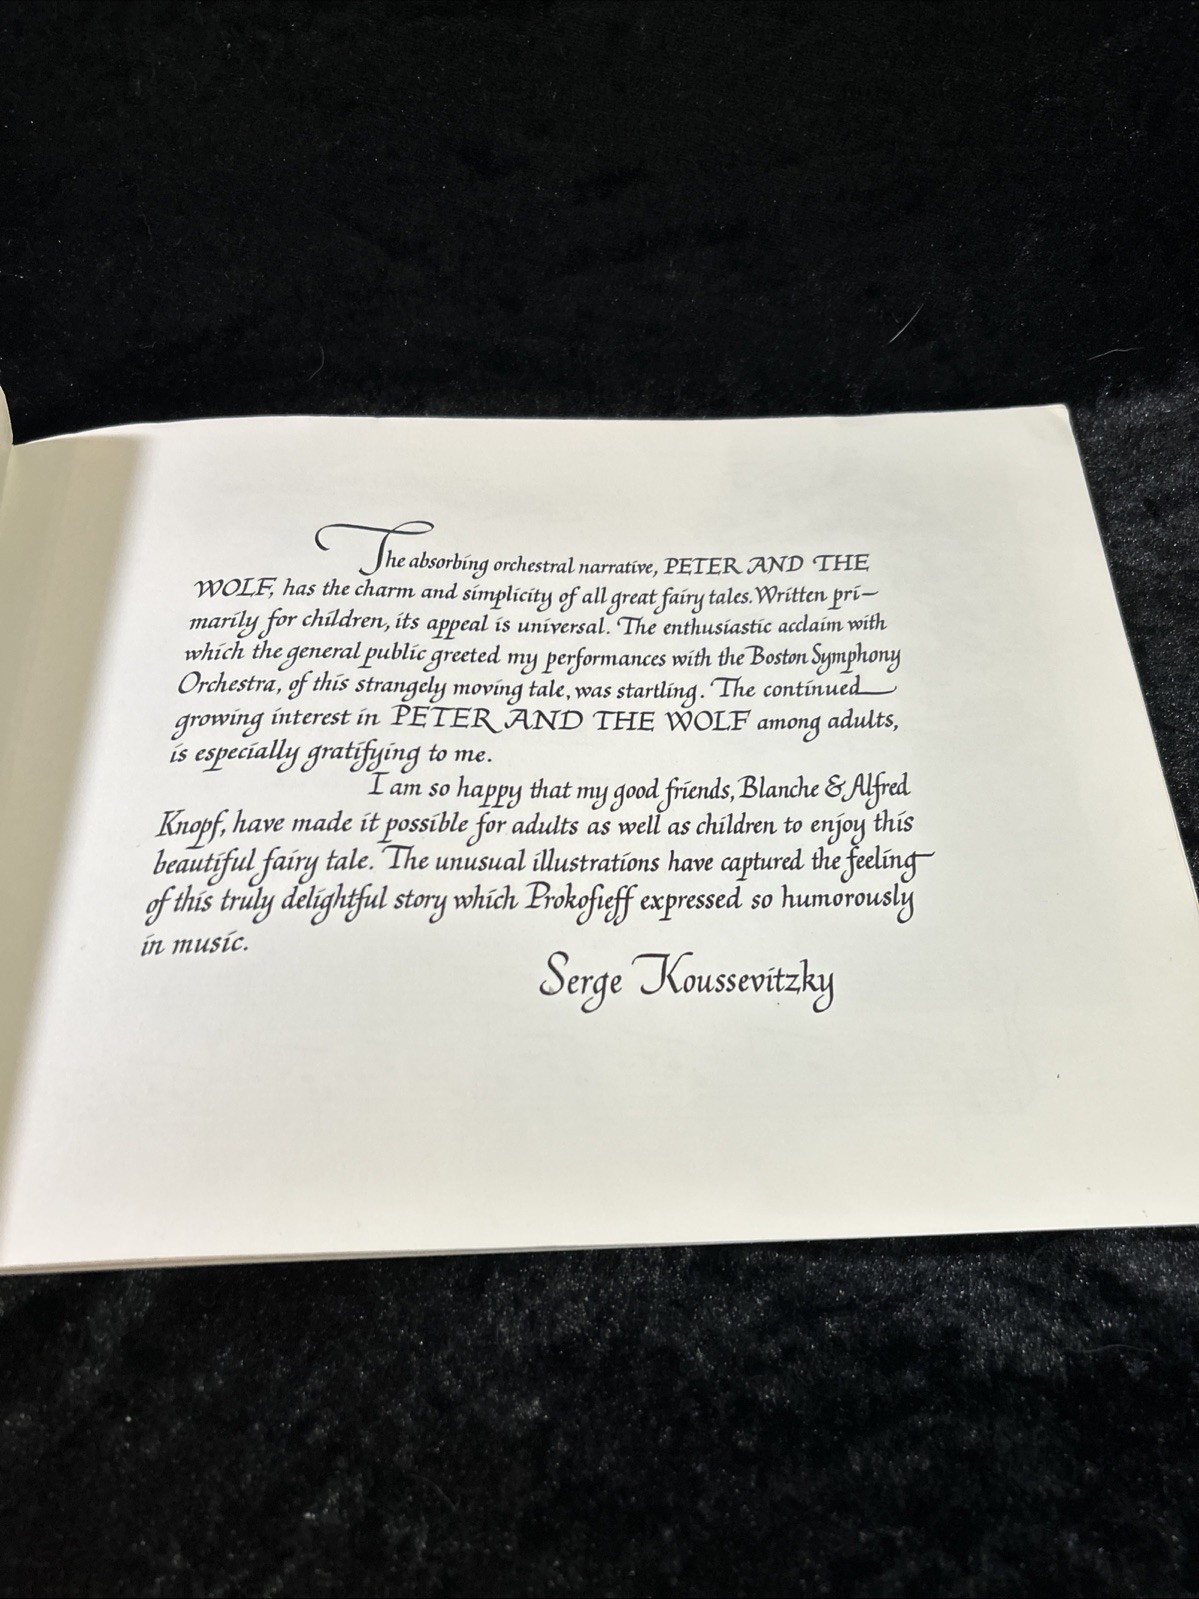 The absorbing orchestral narrative, PETER AND THE
WOLF, has the charm and simplicity of all great fairy tales. Written pri-
marily for children, its appeal is universal. The enthusiastic acclaim with
which the general public greeted my performances with the Boston Symphony
Orchestra, of this strangely moving tale, was startling. The continued
growing interest in PETER AND THE WOLF among adults,
is especially gratifying to me.
I am so happy that my good friends, Blanche & Alfred
Knopf, have made it possible for adults as well as children to enjoy this
beautiful fairy tale. The unusual illustrations have captured the feeling
of this truly delightful story which Prokofieff expressed so humorously
in music.
Serge Koussevitzky